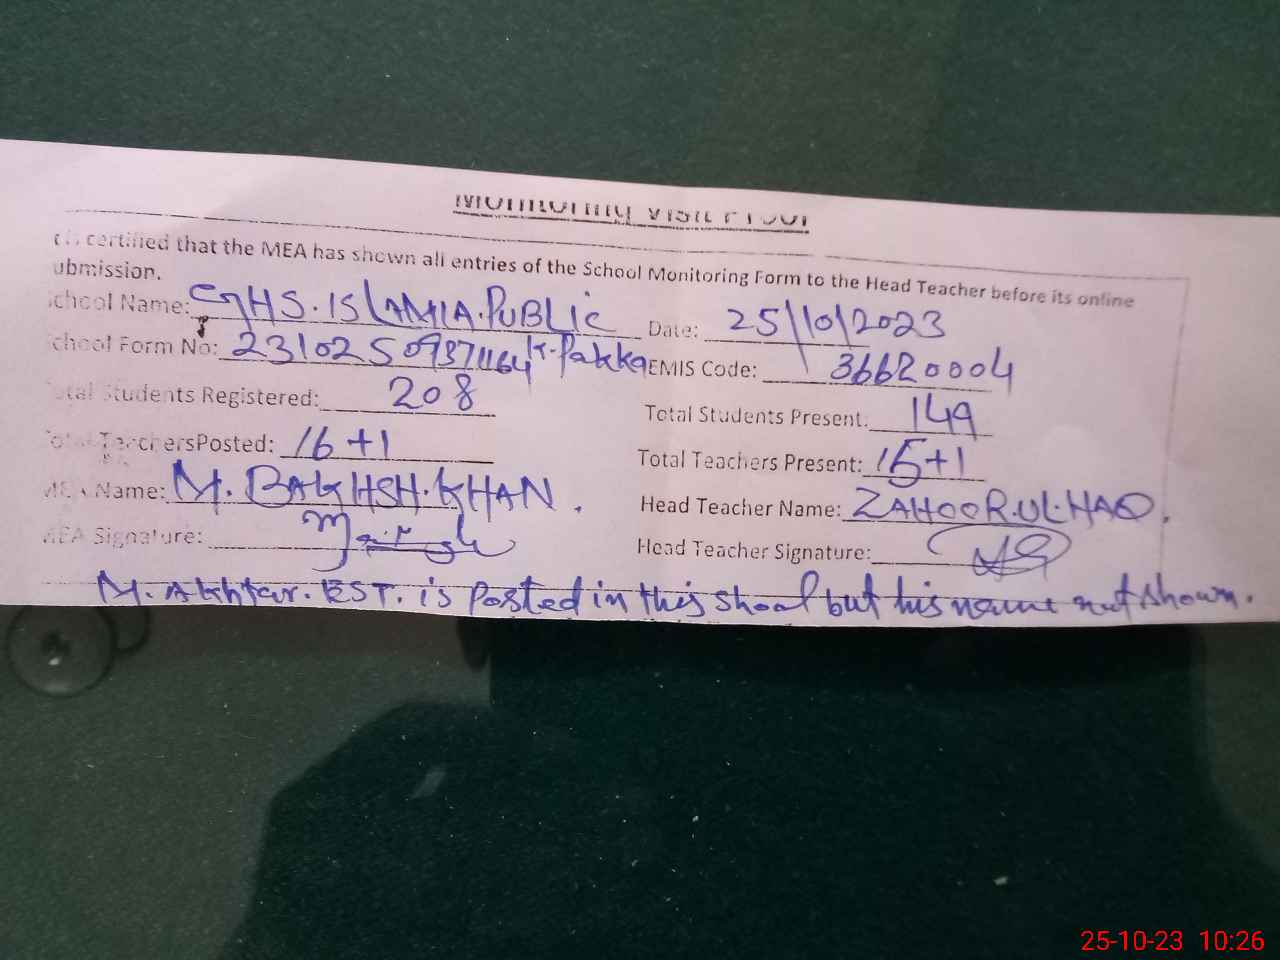 Monitoring Visit Proof
certified that the MEA has shown all entries of the School Monitoring Form to the Head Teacher before its online
ubmission.
chool Name: GHS. ISLAMIA. PUBLIC Date: 25/10/2023
chool Form No: K. Pakka EMIS Code: 36620004
Students Registered: 208 Total Students Present: 149
TeachersPosted: 16+1 Total Teachers Present: 15+1
Name: M. BAKHSH. KHAN. Head Teacher Name: ZAHOOR.UL.HAQ.
MEA Signature: Head Teacher Signature:
M. Akhtar. EST. is Posted in this shool but his name not shown.
25-10-23 10:26